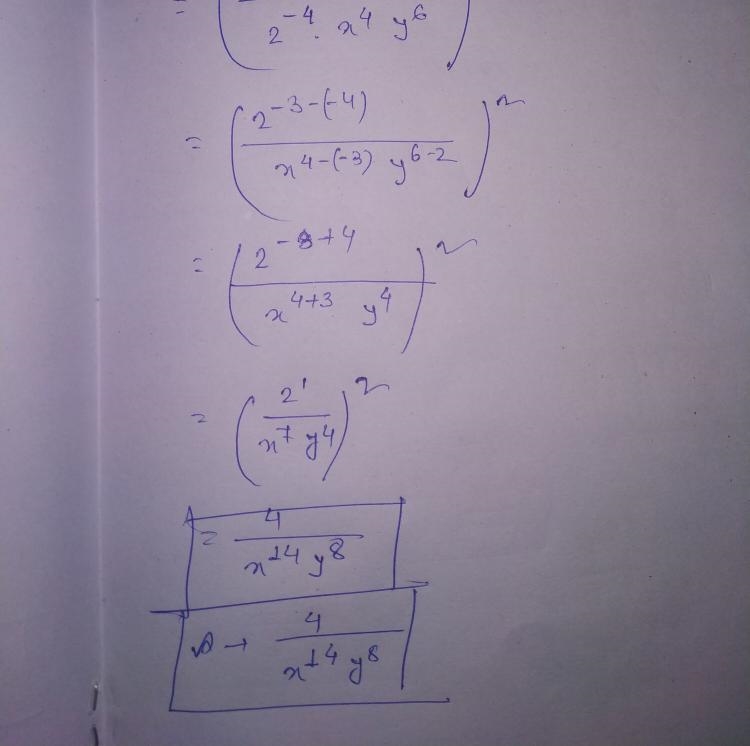 = ( / 2^-4 . x^4 y^6 )
= ( 2^-3-(-4) / x^4-(-3) y^6-2 )^2
= ( 2^-3+4 / x^4+3 y^4 )^2
= ( 2^1 / x^7 y^4 )^2
= 4 / x^14 y^8
→ 4 / x^14 y^8